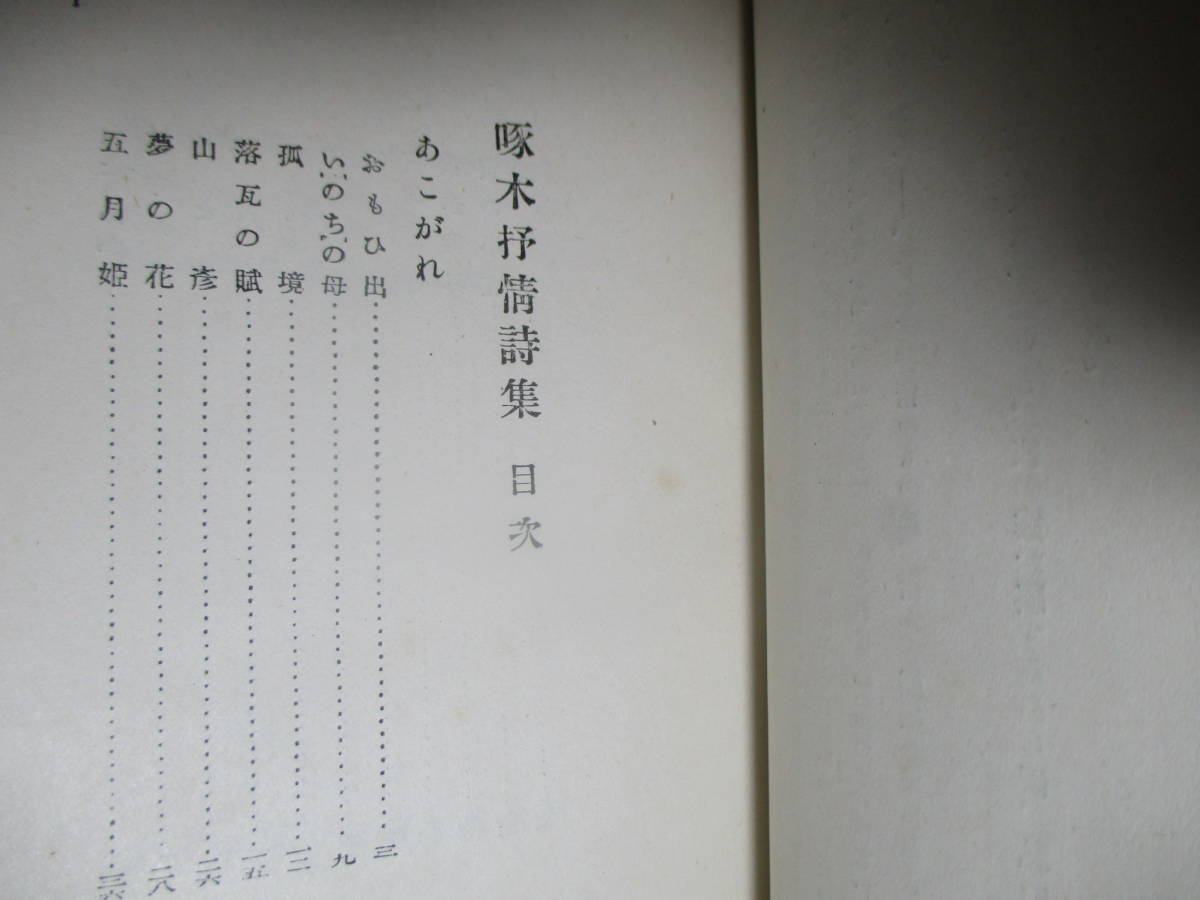 啄木抒情詩集 目次
あこがれ
おもひ出……三
いのちの母……九
孤境……一二
落瓦の賦……一五
山彦……二六
夢の花……二八
五月姫……三六